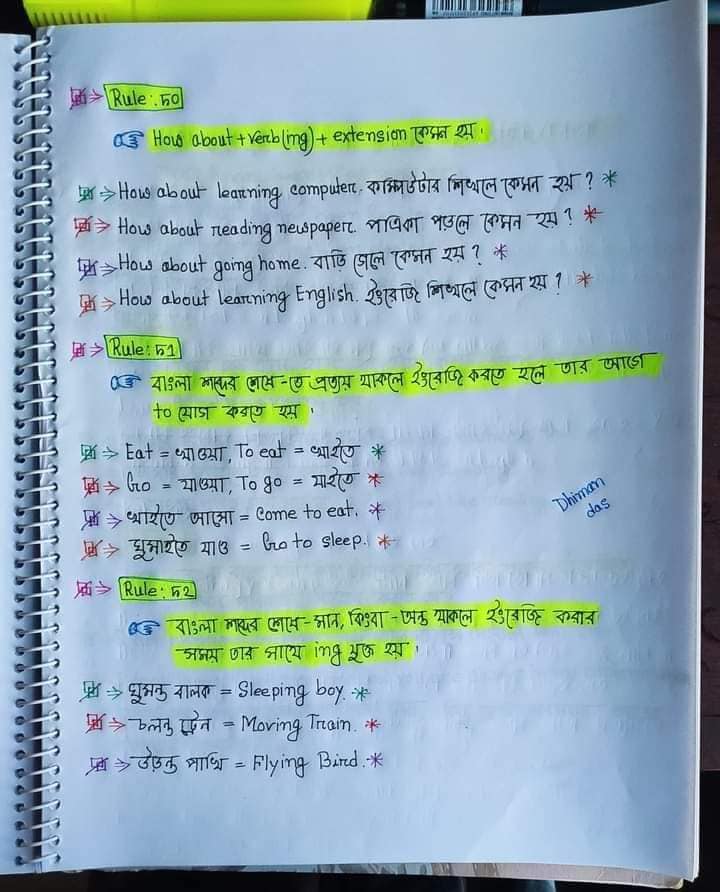 Rule: 50
How about + verb(ing) + extension কেমন হয়।
How about learning computer. কম্পিউটার শিখলে কেমন হয় ? *
How about reading newspaper. পত্রিকা পড়লে কেমন হয় ? *
How about going home. বাড়ি গেলে কেমন হয় ? *
How about learning English. ইংরেজি শিখলে কেমন হয় ? *
Rule: 51
বাংলা শব্দের শেষে -তে প্রত্যয় থাকলে ইংরেজি করতে হলে তার আগে
to যোগ করতে হয়।
Eat = খাওয়া, To eat = খাইতে *
Go = যাওয়া, To go = যাইতে *
খাইতে আসো = Come to eat. *
ঘুমাইতে যাও = Go to sleep. *
Dhiman
das
Rule: 52
বাংলা শব্দের শেষে -মান, কিংবা -অন্ত থাকলে ইংরেজি করার
সময় তার সাথে ing যুক্ত হয়।
ঘুমন্ত বালক = Sleeping boy. *
চলন্ত ট্রেন = Moving Train. *
উড়ন্ত পাখি = Flying Bird. *